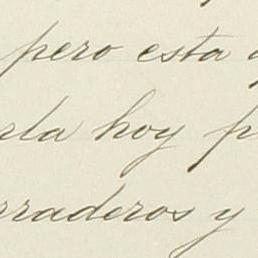 pero esta
rla hoy p
rraderos y